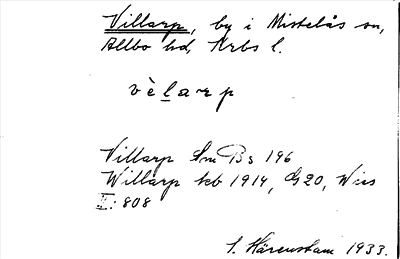 Villarp, by i Mistelås sn,
Allbo hd, Krbs l.
vèlarp
Villarp Sm Bs 196
Willarp kb 1914, G20, Wies
II: 808
S. Härenstam 1933.